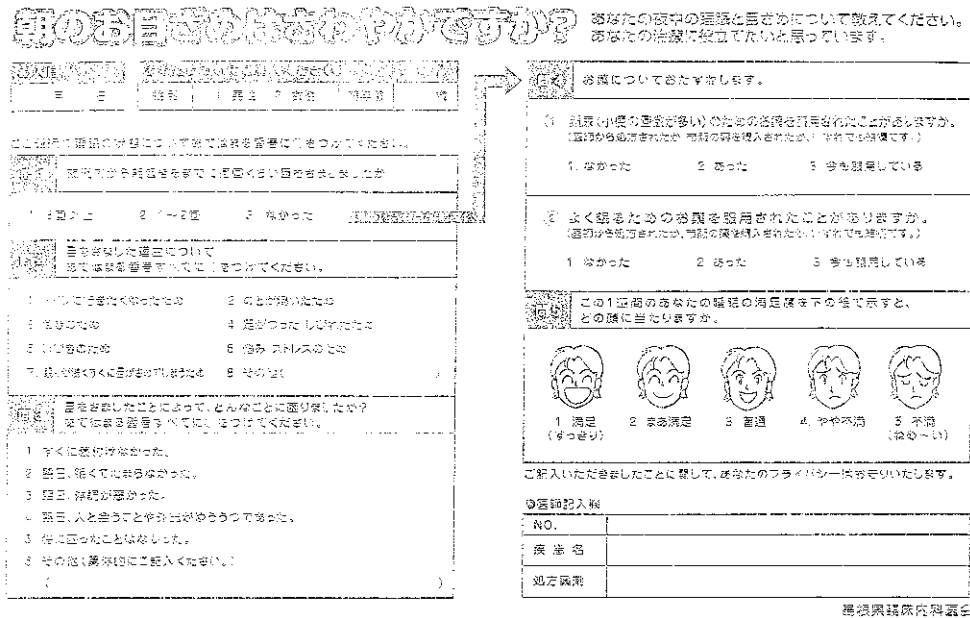 朝のお目ざめはさわやかですか?
あなたの夜中の睡眠と目ざめについて教えてください。
あなたの治療に役立てたいと思っています。
月 日
性別 1 男性 2 女性
ここ1週間の睡眠の状態についてあてはまる番号に○をつけてください。
1 3回以上 2 1~2回 3 なかった
目をさました理由について
あてはまる番号すべてに○をつけてください。
1 トイレに行きたくなったため 2 のどが渇いたため
4 足がつった しびれたため
5 いびきのため 6 悩み ストレスのため
8 その他(
)
問3
目をさましたことによって、どんなことに困りましたか?
あてはまる番号すべてに○をつけてください。
1 すぐに寝付けなかった。
2 翌日、眠くてたまらなかった。
3 翌日、体調が悪かった。
4 翌日、人と会うことや外出がゆううつであった。
5 特に困ったことはなかった。
6 その他(具体的にご記入ください。)
( )
問4
お薬についておたずねします。
(1) 頻尿(小便の回数が多い)のためのお薬を服用されたことがありますか。
(医師から処方されたか 市販の薬を購入されたか、いずれでも結構です。)
1. なかった 2 あった 3 今も服用している
(2) よく眠るためのお薬を服用されたことがありますか。
(医師から処方されたか、市販の薬を購入されたか、いずれでも結構です。)
1 なかった 2 あった 3 今も服用している
問5
この1週間のあなたの睡眠の満足度を下の絵で示すと、
どの顔に当たりますか。
1 満足 2 まあ満足 3 普通 4. やや不満 5 不満
(すっきり) (ねむ~い)
ご記入いただきましたことに関して、あなたのプライバシーはお守りいたします。
◎医師記入欄
NO.
疾患名
処方薬剤
島根県臨床内科医会